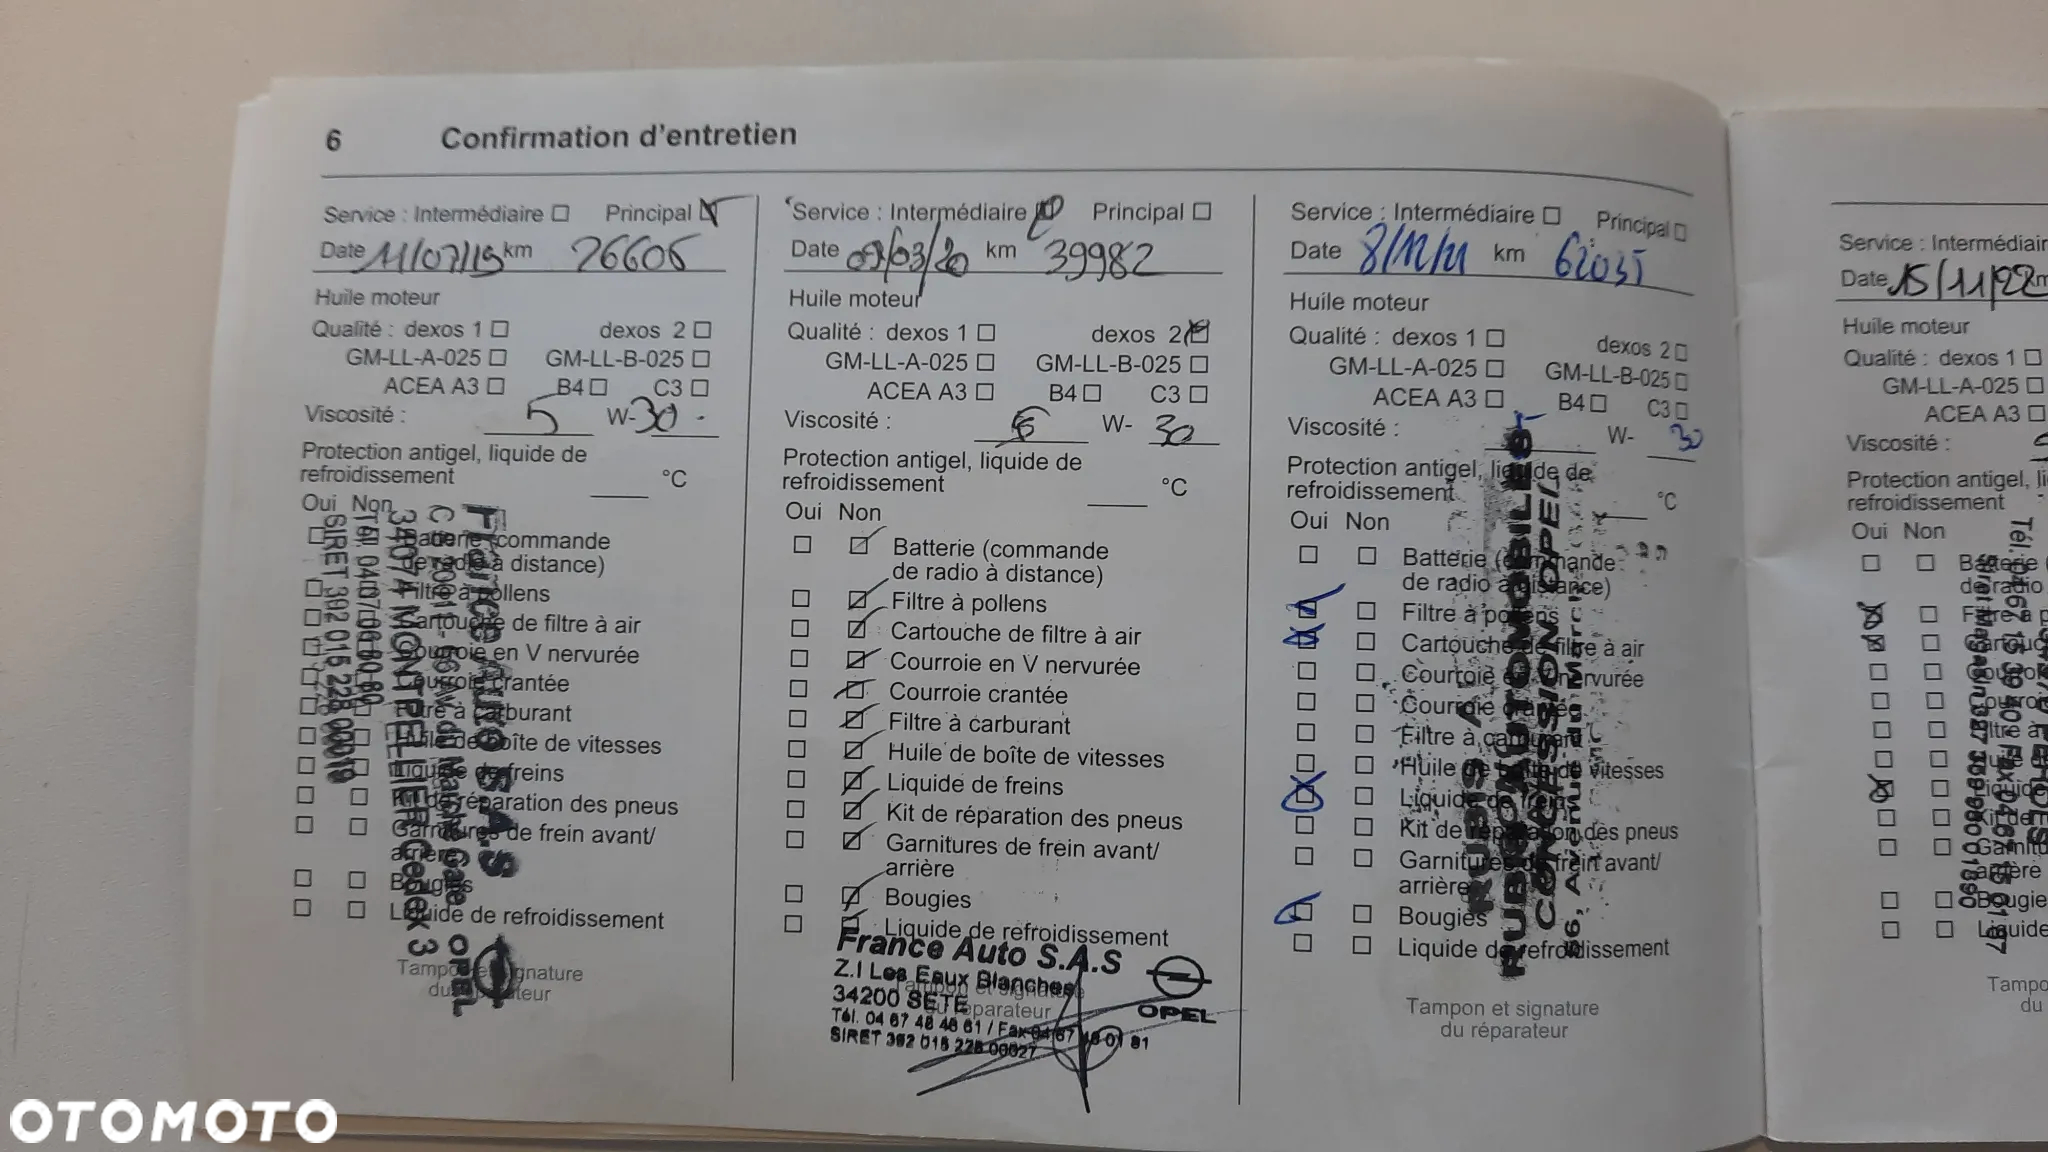 6 Confirmation d'entretien
Service : Intermédiaire Principal
Date 11/07/19 km 26606
Huile moteur
Qualité : dexos 1 dexos 2
GM-LL-A-025 GM-LL-B-025
ACEA A3 B4 C3
Viscosité : 5 W-30
Protection antigel, liquide de
refroidissement °C
Oui Non
Batterie (commande
de radio à distance)
Filtre à pollens
Cartouche de filtre à air
Courroie en V nervurée
Courroie crantée
Filtre à carburant
Huile de boîte de vitesses
Liquide de freins
Kit de réparation des pneus
Garnitures de frein avant/
arrière
Bougies
Liquide de refroidissement
Tampon et signature
du réparateur
France Auto S.A.S
34074 MONTPELLIER Cedex 3
SIRET 392 015 228 00019
OPEL
Service : Intermédiaire Principal
Date 09/03/20 km 39982
Huile moteur
Qualité : dexos 1 dexos 2
GM-LL-A-025 GM-LL-B-025
ACEA A3 B4 C3
Viscosité : 5 W- 30
Protection antigel, liquide de
refroidissement °C
Oui Non
Batterie (commande
de radio à distance)
Filtre à pollens
Cartouche de filtre à air
Courroie en V nervurée
Courroie crantée
Filtre à carburant
Huile de boîte de vitesses
Liquide de freins
Kit de réparation des pneus
Garnitures de frein avant/
arrière
Bougies
Liquide de refroidissement
Tampon et signature
du réparateur
France Auto S.A.S
Z.I Les Eaux Blanches
34200 SETE
Tél. 04 67 48 46 61 / Fax 04 67 48 01 81
SIRET 392 015 228 00027
OPEL
Service : Intermédiaire Principal
Date 8/12/21 km 62035
Huile moteur
Qualité : dexos 1 dexos 2
GM-LL-A-025 GM-LL-B-025
ACEA A3 B4 C3
Viscosité : 5 W- 30
Protection antigel, liquide de
refroidissement °C
Oui Non
Batterie (commande
de radio à distance)
Filtre à pollens
Cartouche de filtre à air
Courroie en V nervurée
Courroie crantée
Filtre à carburant
Huile de boîte de vitesses
Liquide de freins
Kit de réparation des pneus
Garnitures de frein avant/
arrière
Bougies
Liquide de refroidissement
Tampon et signature
du réparateur
AUTOMOBILES
CONCESSION OPEL
Service : Intermédiair
Date 15/11/22
Huile moteur
Qualité : dexos 1
GM-LL-A-025
ACEA A3
Viscosité :
Protection antigel, li
refroidissement
Oui Non
Batterie
de radio
Liquide
Tampo
du
OTOMOTO